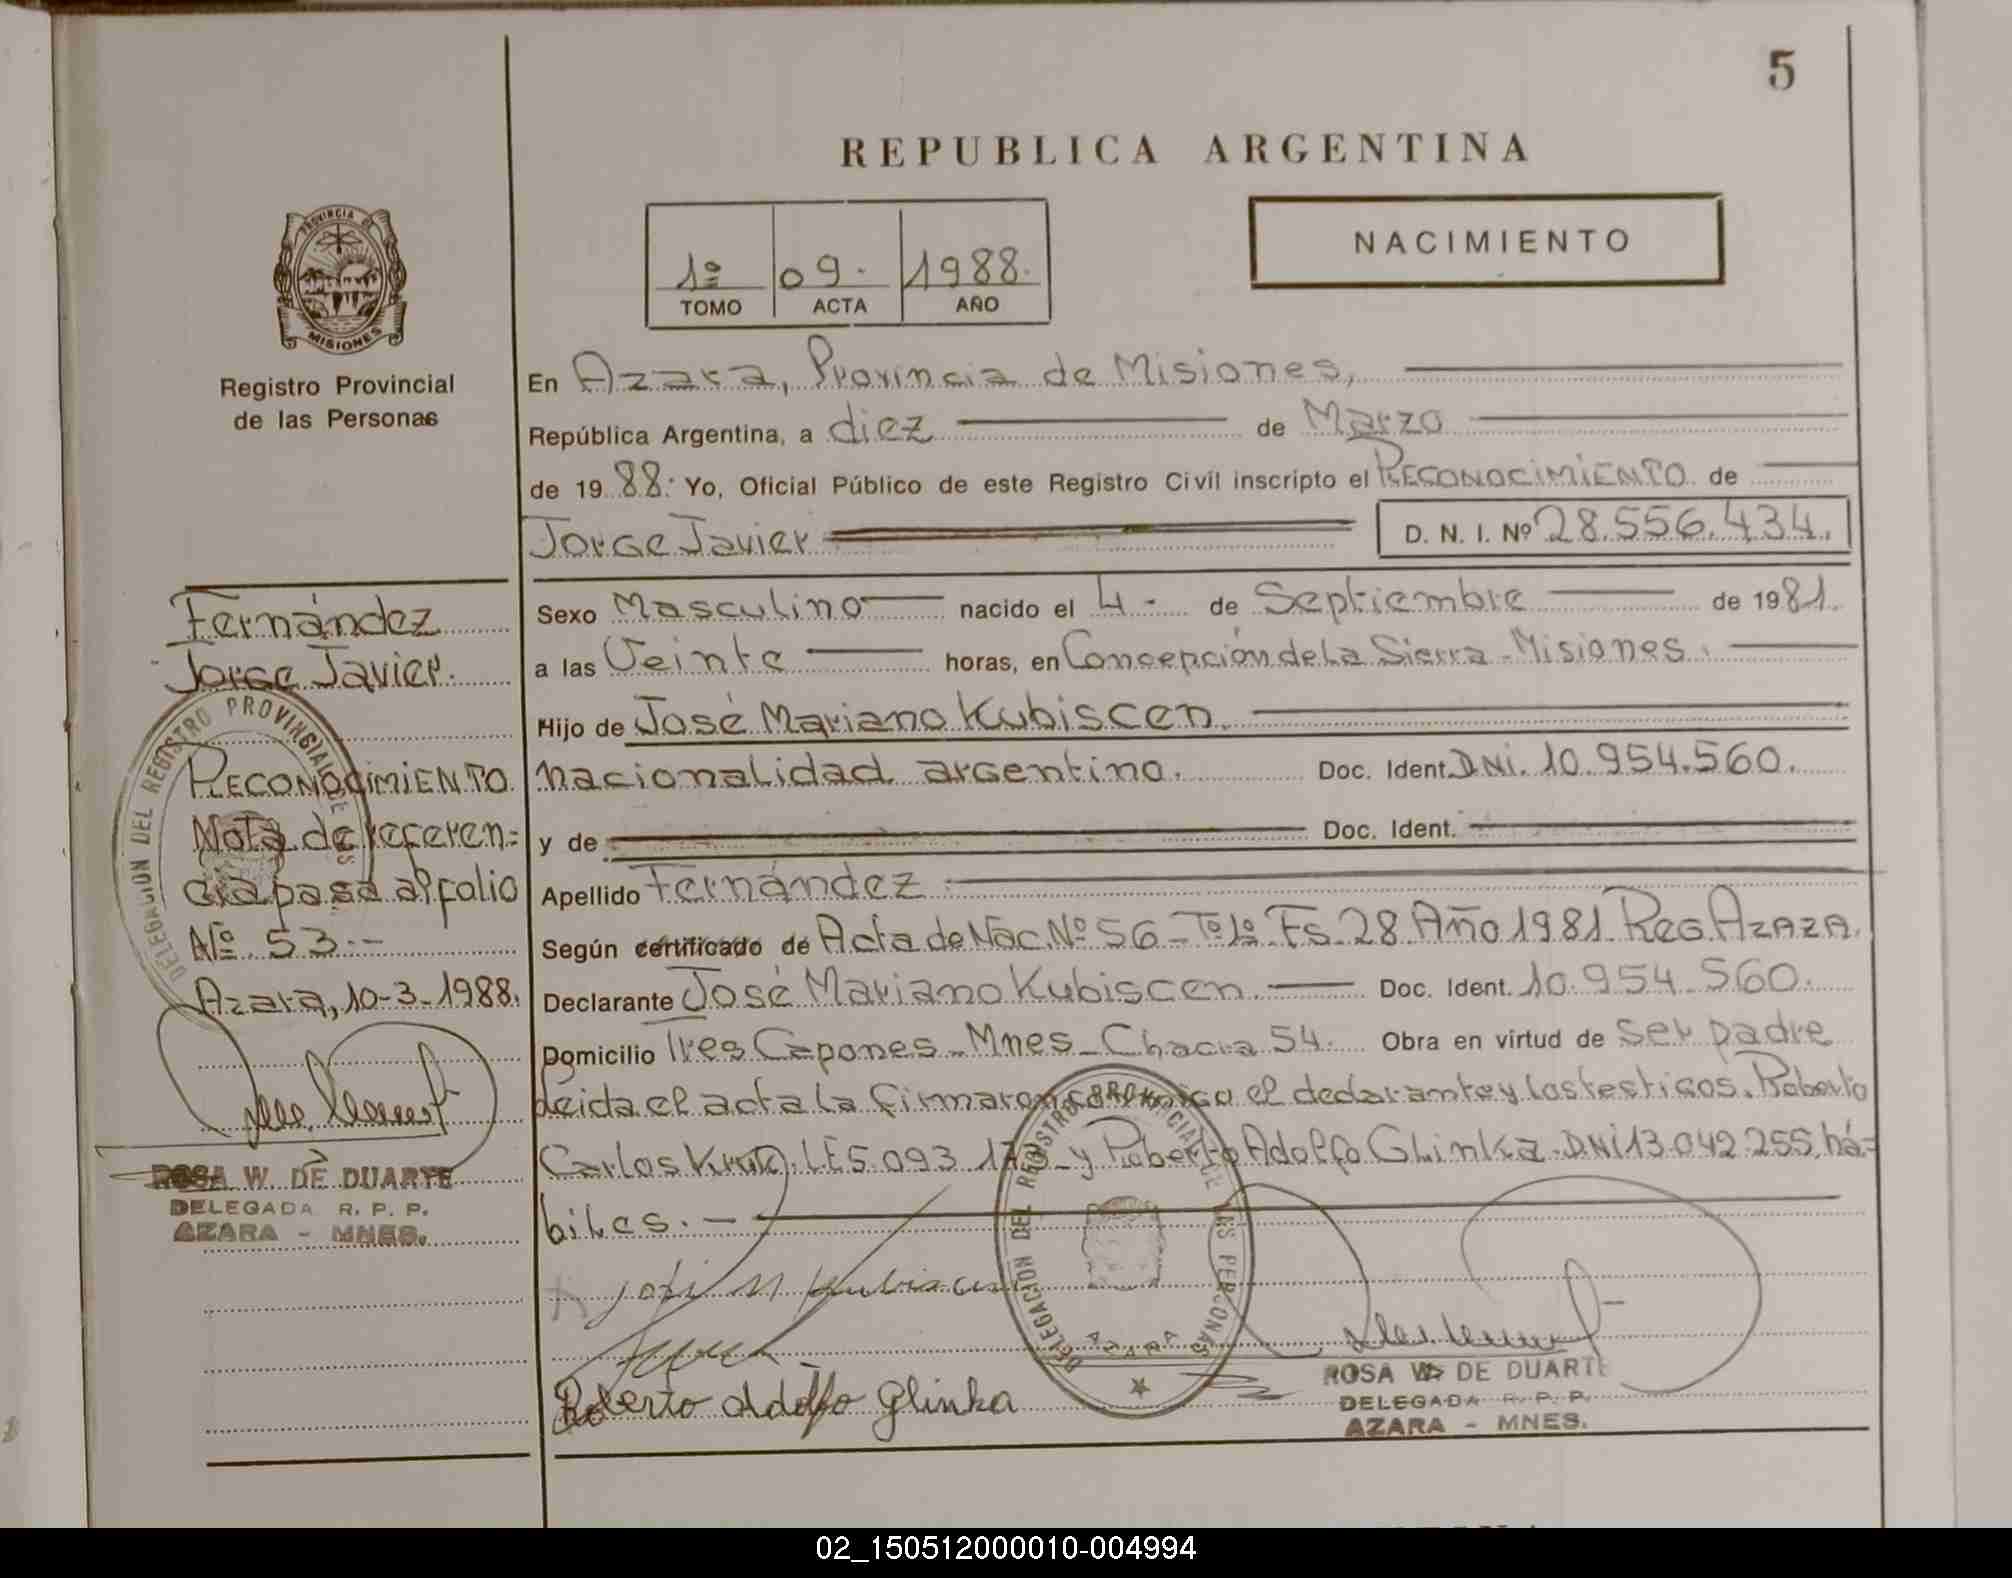 5
REPUBLICA ARGENTINA
1º 09. 1988.
TOMO ACTA AÑO
NACIMIENTO
PROVINCIA DE
MISIONES
Registro Provincial
de las Personas
En Azara, Provincia de Misiones,
República Argentina, a diez de Marzo
de 1988. Yo, Oficial Público de este Registro Civil inscripto el RECONOCIMIENTO de
Jorge Javier D. N. I. Nº 28.556.434.
Sexo Masculino nacido el 4- de Septiembre de 1981.
a las Veinte horas, en Concepción de La Sierra - Misiones.
Hijo de José Mariano Kubiscen.
nacionalidad argentino. Doc. Ident. DNI. 10.954.560.
y de Doc. Ident.
Apellido Fernández
Según certificado de Acta de Nac. Nº 56 - Tº 1º Fs. 28 Año 1981 Reg AZAZA.
Declarante José Mariano Kubiscen. Doc. Ident. 10.954.560.
Domicilio Tres Capones - Mnes - Chacra 54. Obra en virtud de ser padre
Leida el acta la firmaron conmigo el declarante y los testigos. Roberto
Carlos LE 5.093 y Roberto Adolfo Glinka. DNI 13.042.255 há=
biles. -
José M Kubiscen
Roberto Adolfo Glinka
DELEGACION DEL REGISTRO PROVINCIAL DE LAS PERSONAS
AZARA
ROSA W. DE DUARTE
DELEGADA R. P. P.
AZARA - MNES.
Fernández
Jorge Javier.
RECONOCIMIENTO
Nota de referen=
cia pasa al folio
Nº 53.-
Azara, 10-3-1988.
DELEGACION DEL REGISTRO PROVINCIAL DE
ROSA W. DE DUARTE
DELEGADA R. P. P.
AZARA - MNES.
02_150512000010-004994